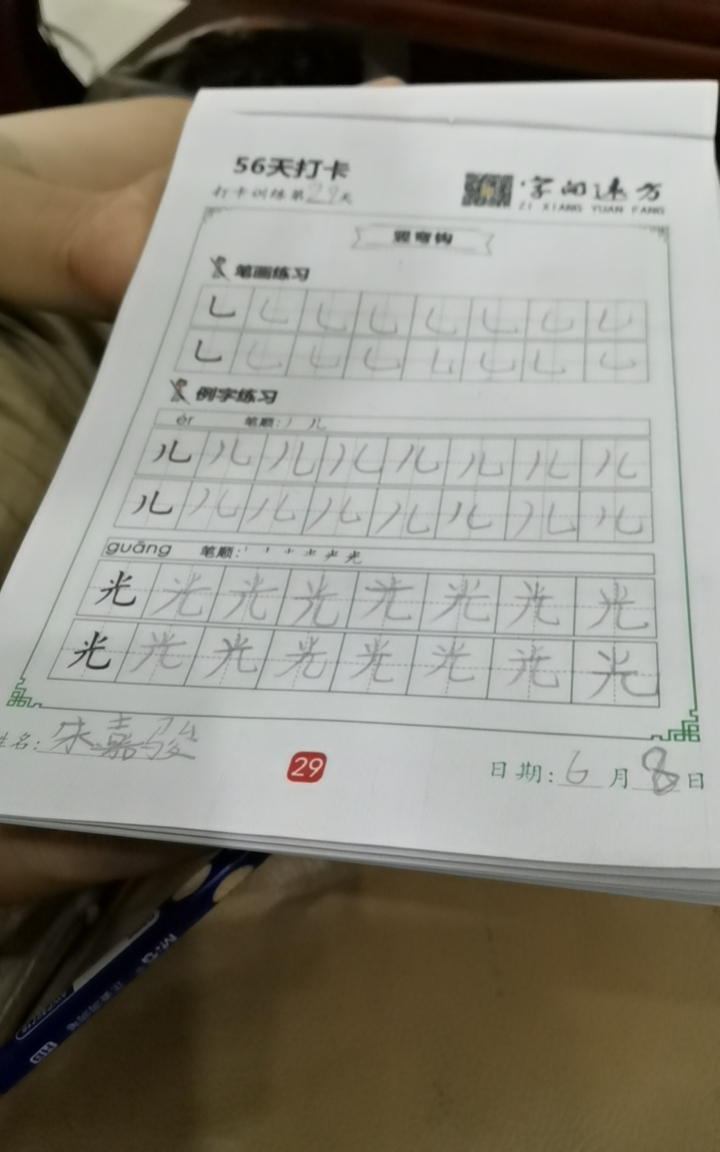 56天打卡
打卡训练第29天
字向远方
ZI XIANG YUAN FANG
竖弯钩
笔画练习
乚 乚 乚 乚 乚 乚 乚 乚
乚 乚 乚 乚 乚 乚 乚 乚
例字练习
ér 笔顺: 丿 儿
儿 儿 儿 儿 儿 儿 儿 儿
儿 儿 儿 儿 儿 儿 儿 儿
guāng 笔顺:
光 光 光 光 光 光 光 光
光 光 光 光 光 光 光 光
姓名: 宋嘉骏
29
日期: 6月8日